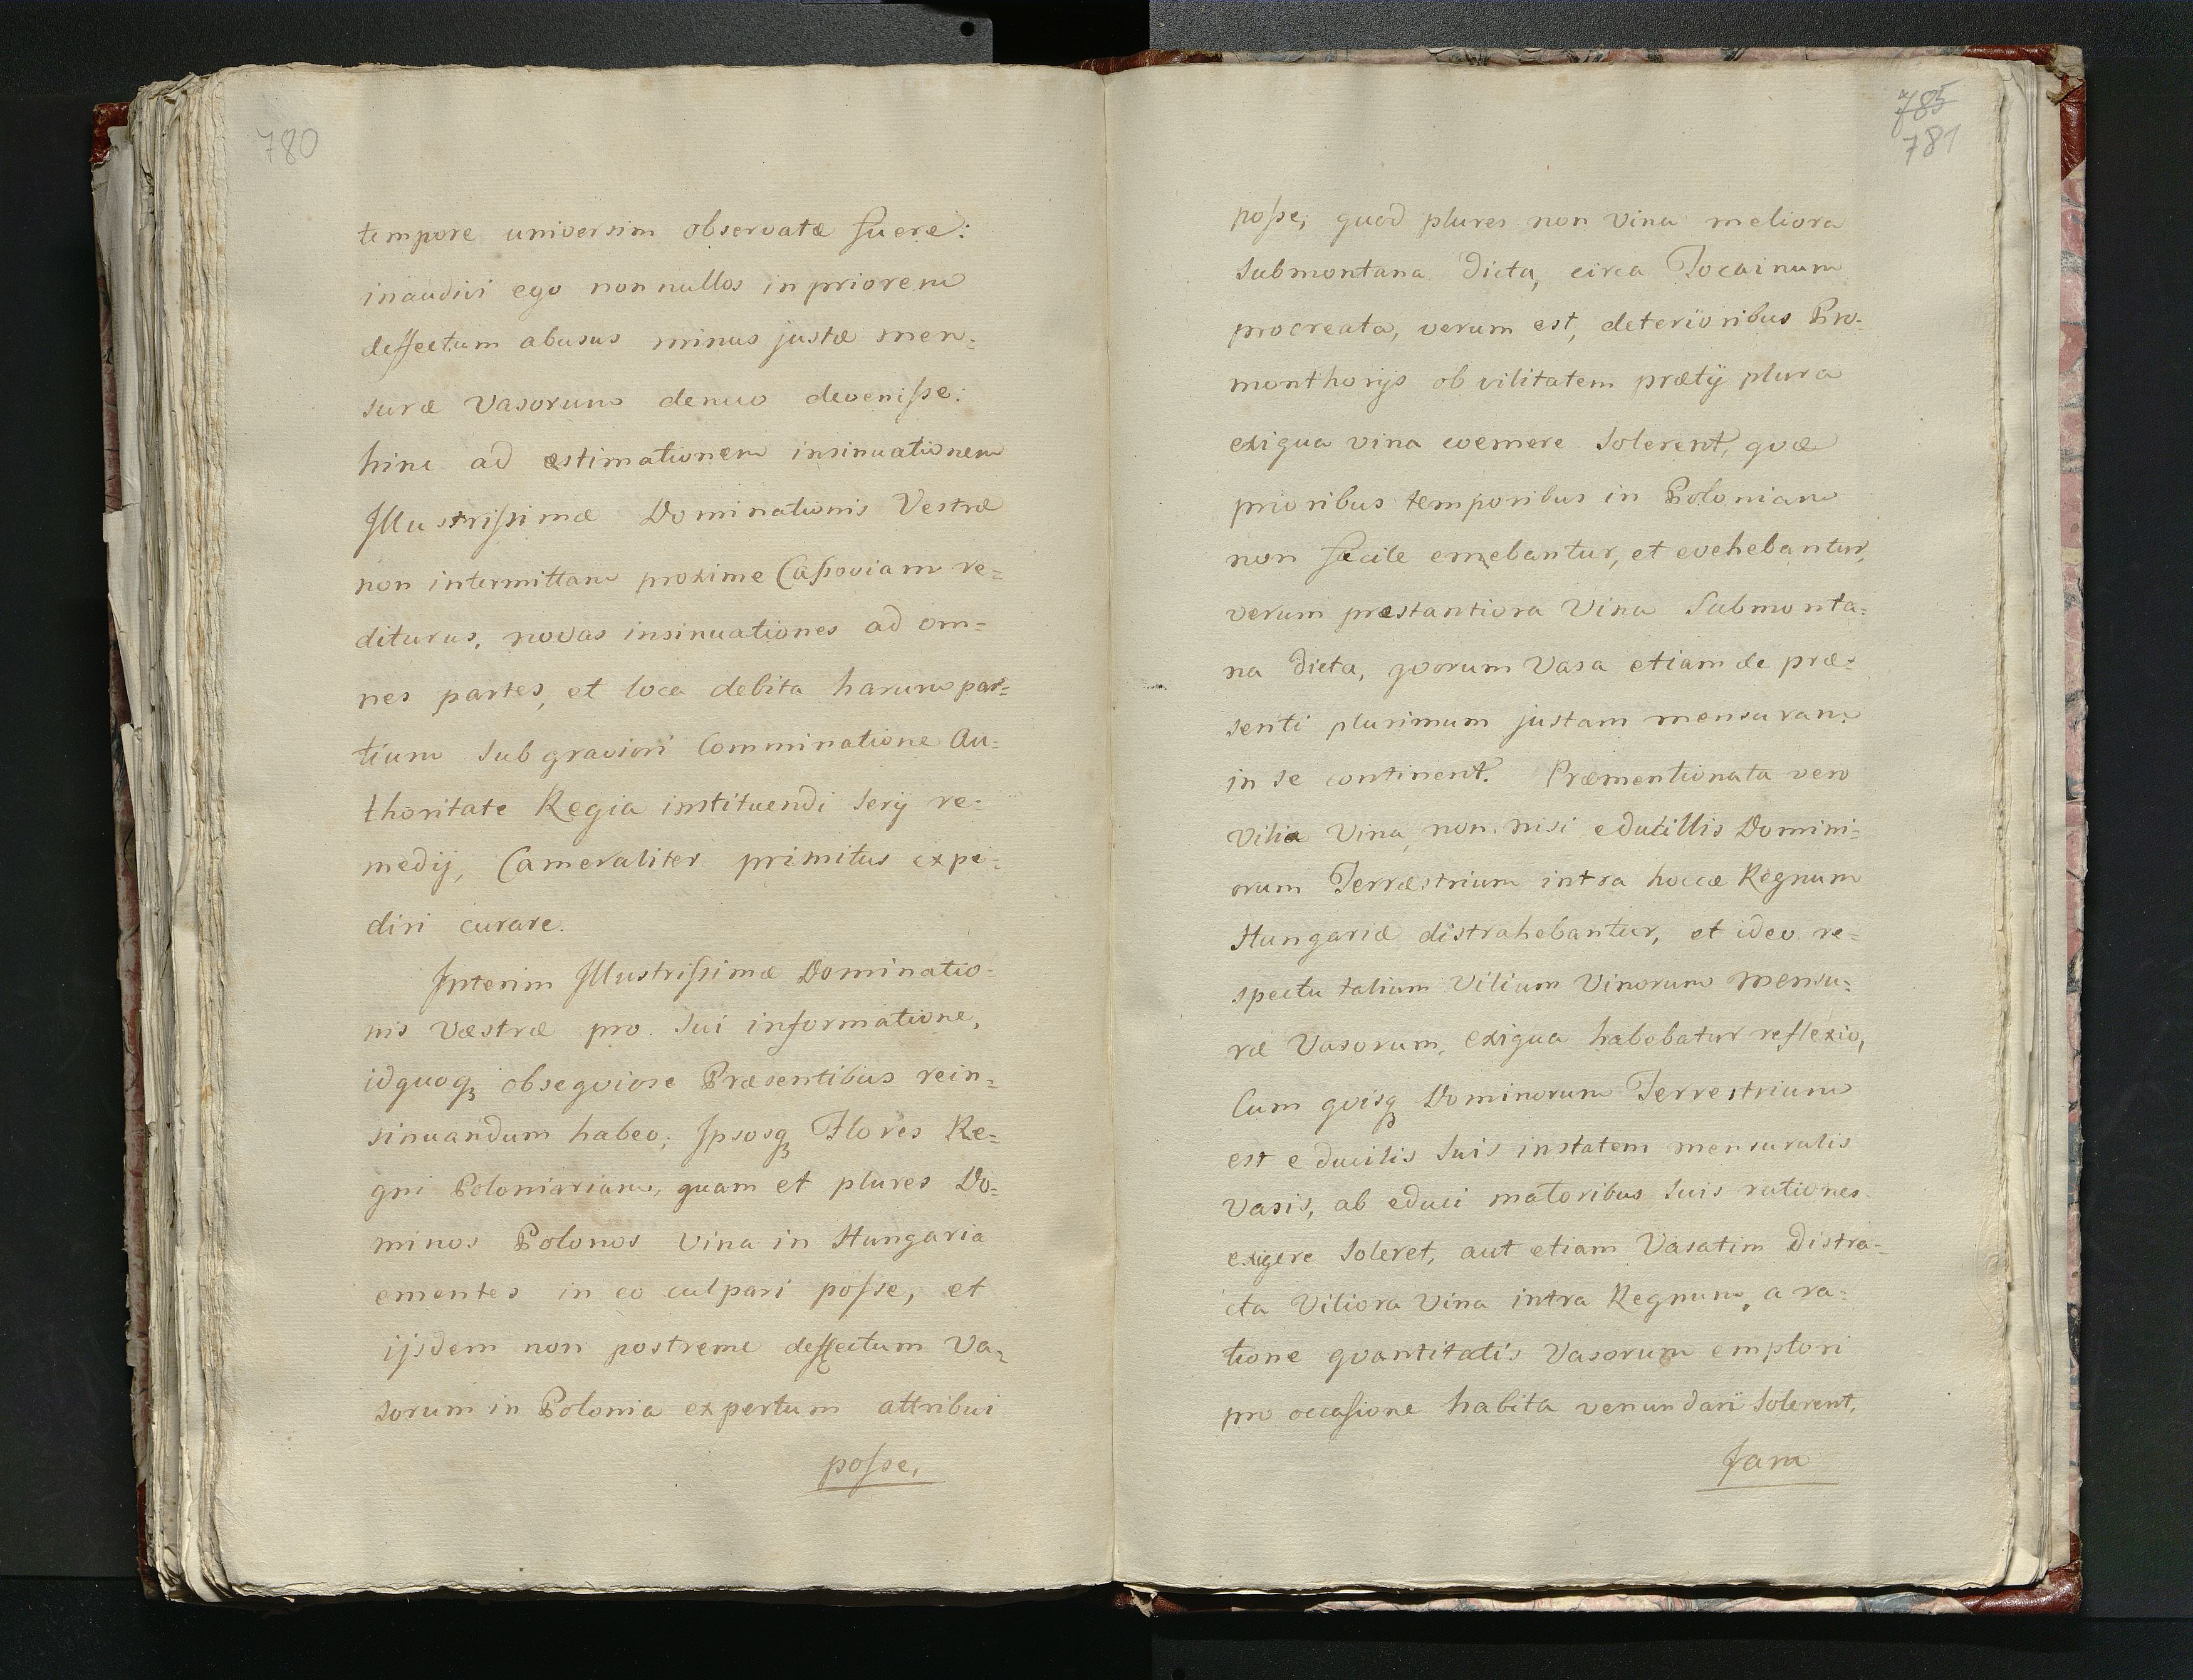 780
tempore universim observatæ fuere:
inaudivi ego nonnullos in priorem
deffectum abusus minus justæ men=
suræ Vasorum denuo devenisse:
hinc ad æstimationem insinuationem
Illustrissimæ Dominationis Vestræ
non intermittam proxime Cassoviam re=
diturus, novas insinuationes ad om=
nes partes, et loca debita harum par=
tium sub graviori Comminatione Au=
thoritate Regia instituendi serij re=
medij, Cameraliter primitus expe=
diri curare.
Interim Illustrissimæ Dominatio=
nis Væstræ pro sui informatione,
idquoq3 obseqviose Præsentibus rein=
sinuandum habeo; Ipsosq3 Flores Re=
gni Poloniariam, quam et plures Do=
minos Polonos Vina in Hungaria
ementes in eo culpari posse, et
ijsdem non postreme deffectum Va=
sorum in Polonia expertum attribui
posse,
785
781
posse; quod plures non vina meliora
submontana dicta, circa Tocainum
procreata, verum est, deterioribus Pro=
monthorijs ob vilitatem prætij plura
exigua vina coemere solerent, qvæ
prioribus temporibus in Poloniam
non facile emebantur, et evehebantur,
verum præstantiora Vina Submonta=
na dicta, qvorum Vasa etiam de præ=
senti plurimum justam mensuram
in se continent. Præmentionata vero
Vilia Vina, non nisi educillis Domini=
orum Terræstrium intra hocce Regnum
Hungariæ distrahebantur, et ideo re=
spectu talium Vilium Vinorum mensu=
ræ Vasorum, exigua habebatur reflexio,
Cum qvisq3 Dominorum Terrestrium
est educilis suis instatem mensuratis
Vasis, ab educi matoribus suis rationes
exigere soleret, aut etiam Vasatim distra=
cta Viliora Vina intra Regnum, a ra=
tione qvantitatis Vasorum emptori
pro occasione habita venundari solerent,
Jam